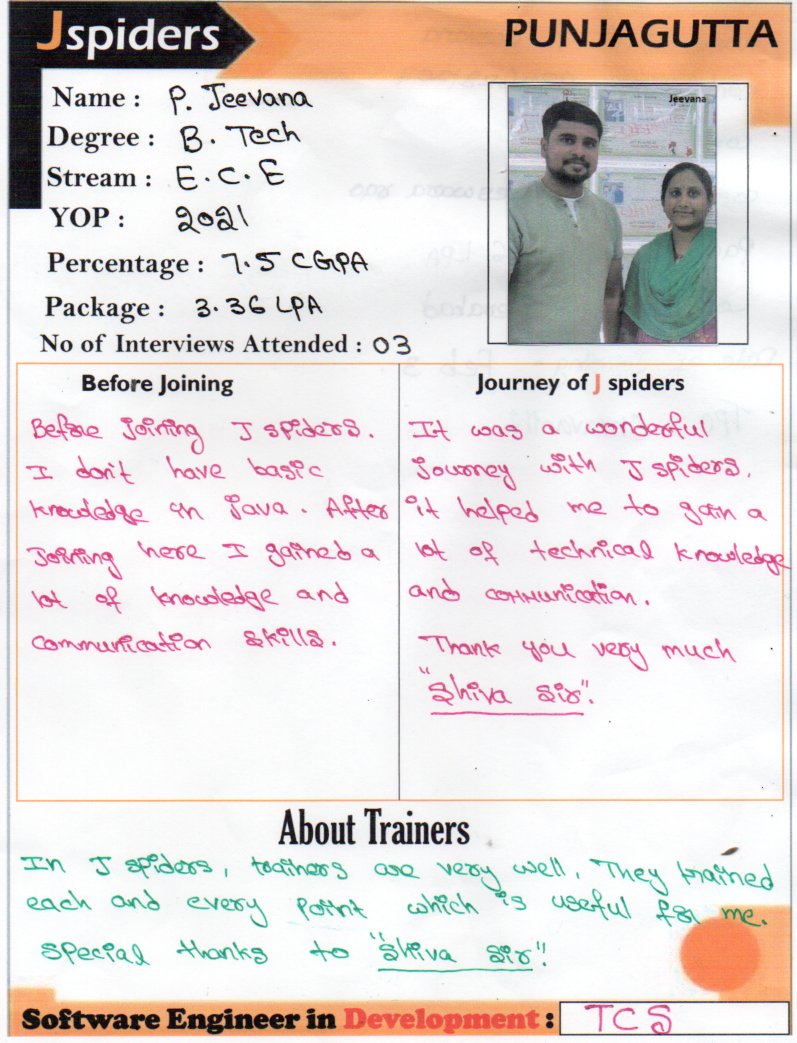 Jspiders PUNJAGUTTA
Name : P. Jeevana
Jeevana
Degree : B. Tech
Stream : E.C.E
YOP : 2021
Percentage : 7.5 CGPA
Package : 3.36 LPA
No of Interviews Attended : 03
Before Joining
Before joining J spiders.
I don't have basic
knowledge in java. After
Joining here I gained a
lot of knowledge and
communication skills.
Journey of J spiders
It was a wonderful
journey with J spiders.
it helped me to gain a
lot of technical knowledge
and communication.
Thank you very much
"Shiva Sir".
About Trainers
In J spiders, trainers are very well. They trained
each and every point which is useful for me.
special thanks to "Shiva Sir".
Software Engineer in Development : TCS